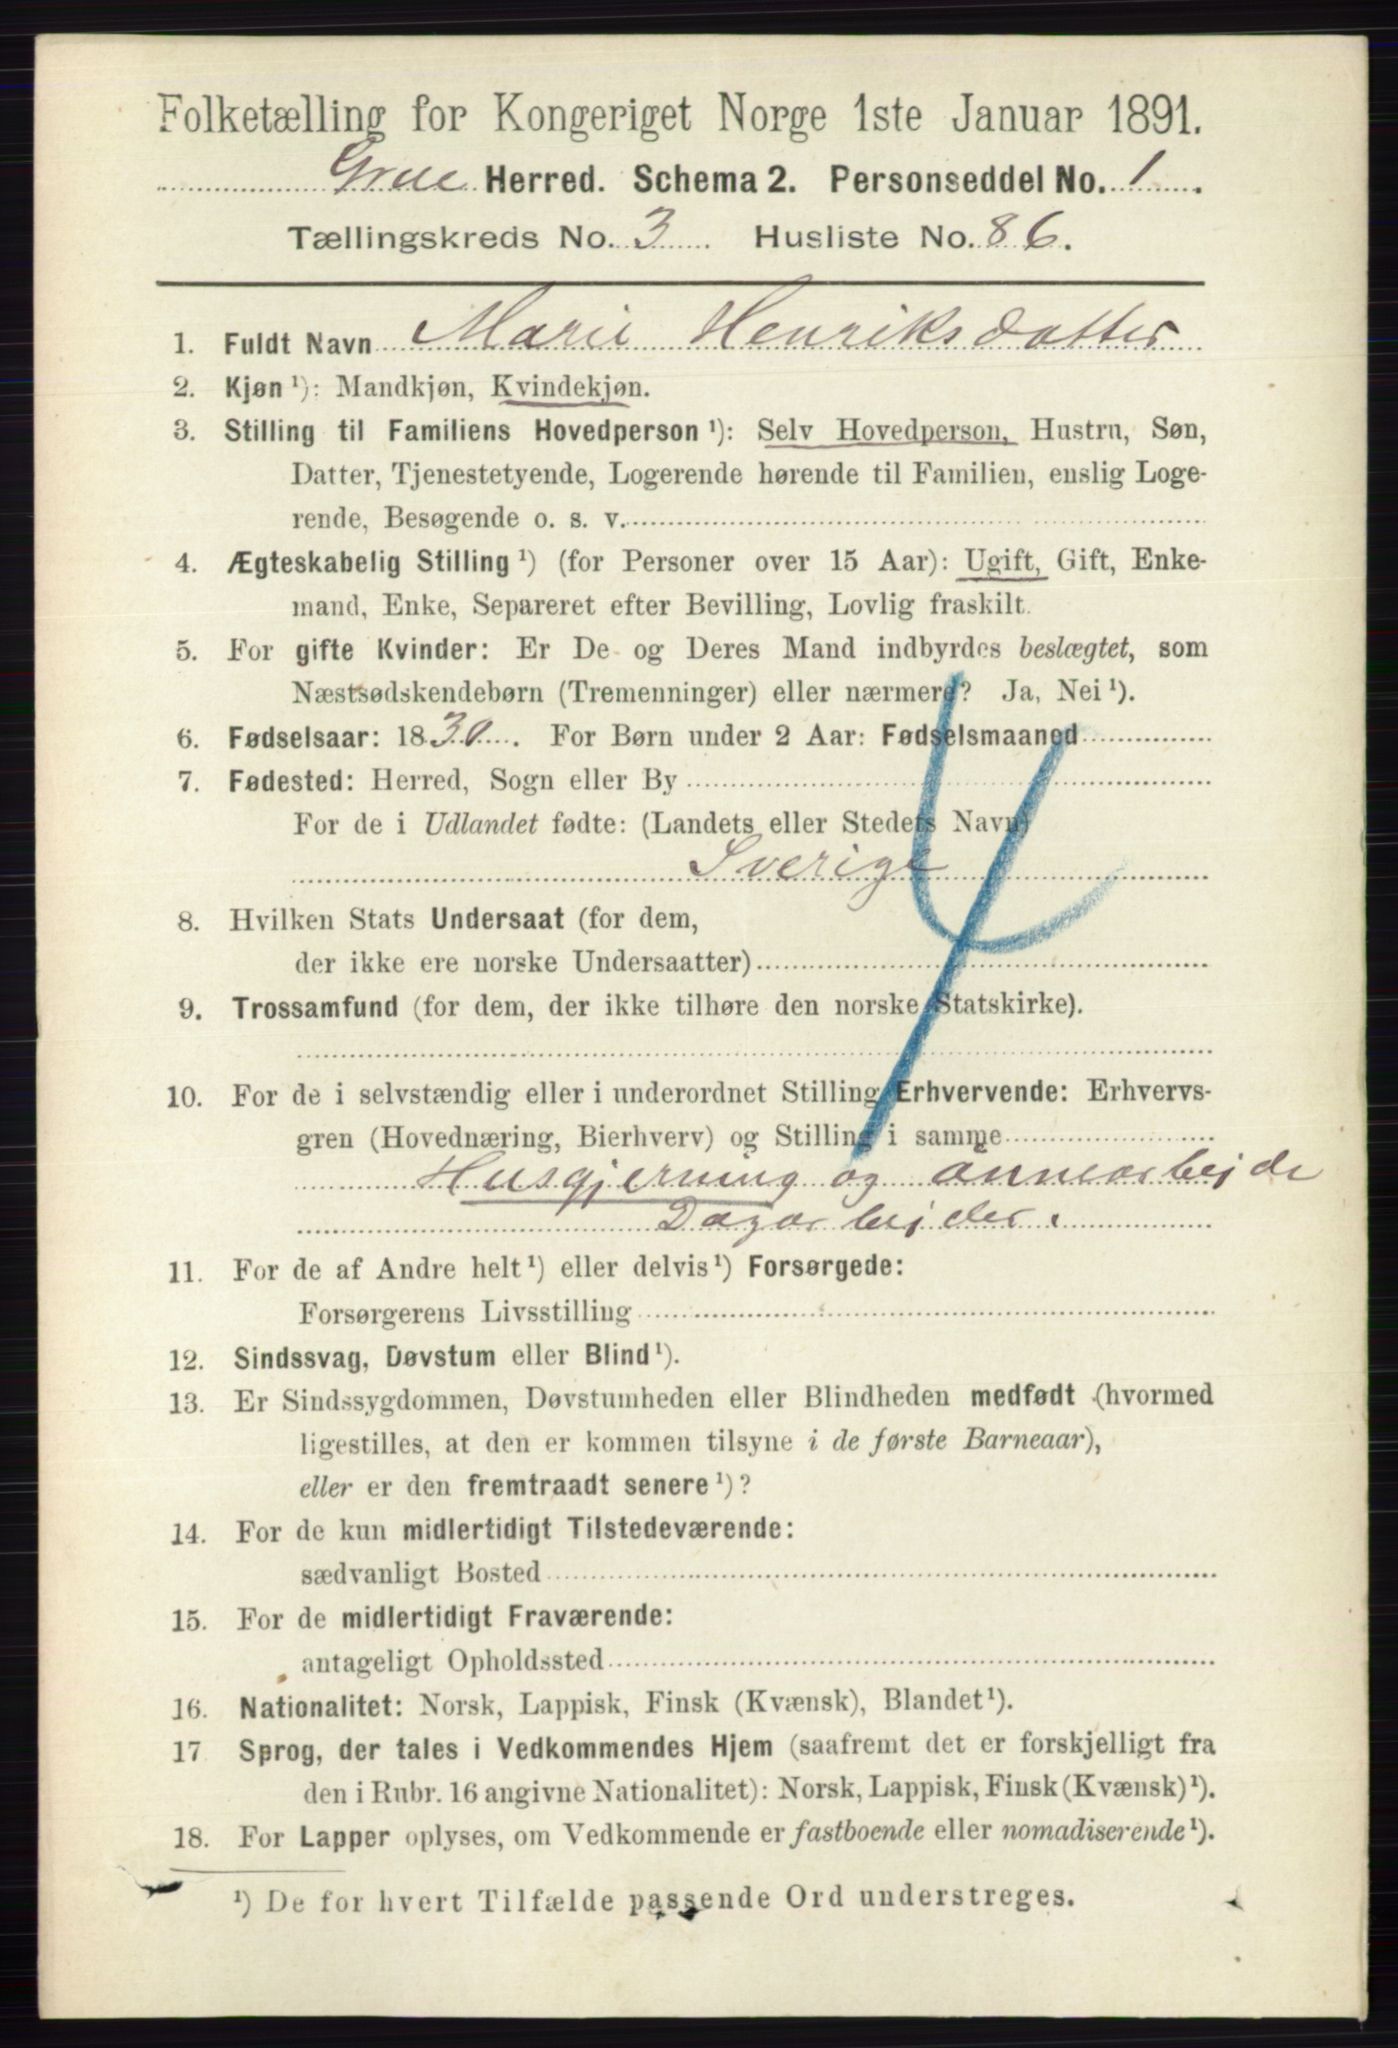 Folketælling for Kongeriget Norge 1ste Januar 1891.
Grue Herred. Schema 2. Personseddel No. 1.
Tællingskreds No. 3 Husliste No. 86.
1. Fuldt Navn Marie Henriksdatter
2. Kjøn¹): Mandkjøn, Kvindekjøn.
3. Stilling til Familiens Hovedperson¹): Selv Hovedperson, Hustru, Søn,
Datter, Tjenestetyende, Logerende hørende til Familien, enslig Loge-
rende, Besøgende o. s. v.
4. Ægteskabelig Stilling¹) (for Personer over 15 Aar): Ugift, Gift, Enke-
mand, Enke, Separeret efter Bevilling, Lovlig fraskilt.
5. For gifte Kvinder: Er De og Deres Mand indbyrdes beslægtet, som
Næstsødskendebørn (Tremenninger) eller nærmere? Ja, Nei¹).
6. Fødselsaar: 1830. For Børn under 2 Aar: Fødselsmaaned
7. Fødested: Herred, Sogn eller By
For de i Udlandet fødte: (Landets eller Stedets Navn)
Sverige
8. Hvilken Stats Undersaat (for dem,
der ikke ere norske Undersaatter)
9. Trossamfund (for dem, der ikke tilhøre den norske Statskirke).
10. For de i selvstændig eller i underordnet Stilling Erhvervende: Erhvervs-
gren (Hovednæring, Bierhverv) og Stilling i samme
Husgjerning og onnearbejde
Dagarbejder.
11. For de af Andre helt¹) eller delvis¹) Forsørgede:
Forsørgerens Livsstilling
12. Sindssvag, Døvstum eller Blind¹).
13. Er Sindssygdommen, Døvstumheden eller Blindheden medfødt (hvormed
ligestilles, at den er kommen tilsyne i de første Barneaar),
eller er den fremtraadt senere¹)?
14. For de kun midlertidigt Tilstedeværende:
sædvanligt Bosted
15. For de midlertidigt Fraværende:
antageligt Opholdssted
16. Nationalitet: Norsk, Lappisk, Finsk (Kvænsk), Blandet¹).
17 Sprog, der tales i Vedkommendes Hjem (saafremt det er forskjelligt fra
den i Rubr. 16 angivne Nationalitet): Norsk, Lappisk, Finsk (Kvænsk)¹).
18. For Lapper oplyses, om Vedkommende er fastboende eller nomadiserende¹).
¹) De for hvert Tilfælde passende Ord understreges.